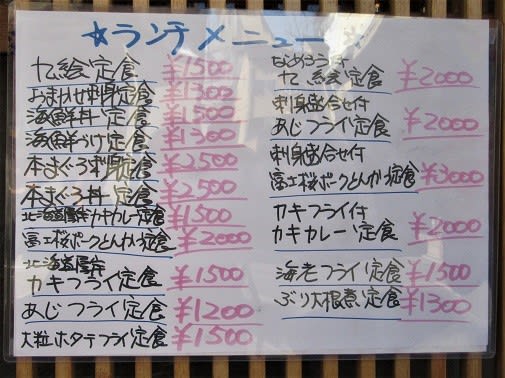 ☆ランチメニュー☆
七絵定食 ¥1500
おまかせ刺身定食 ¥1300
海鮮丼定食 ¥1500
海鮮づけ定食 ¥1300
本まぐろ刺身定食 ¥2500
本まぐろ丼定食 ¥2500
北海道厚岸カキカレー定食 ¥1500
富士桜ポークとんかつ定食 ¥2000
北海道厚岸
カキフライ定食 ¥1500
あじフライ定食 ¥1200
大粒ホタテフライ定食 ¥1500
なめろう付
七絵定食 ¥2000
刺身盛合せ付
あじフライ定食 ¥2000
刺身盛合せ付
富士桜ポークとんかつ定食 ¥3000
カキフライ付
カキカレー定食 ¥2000
海老フライ定食 ¥1500
ぶり大根煮定食 ¥1300